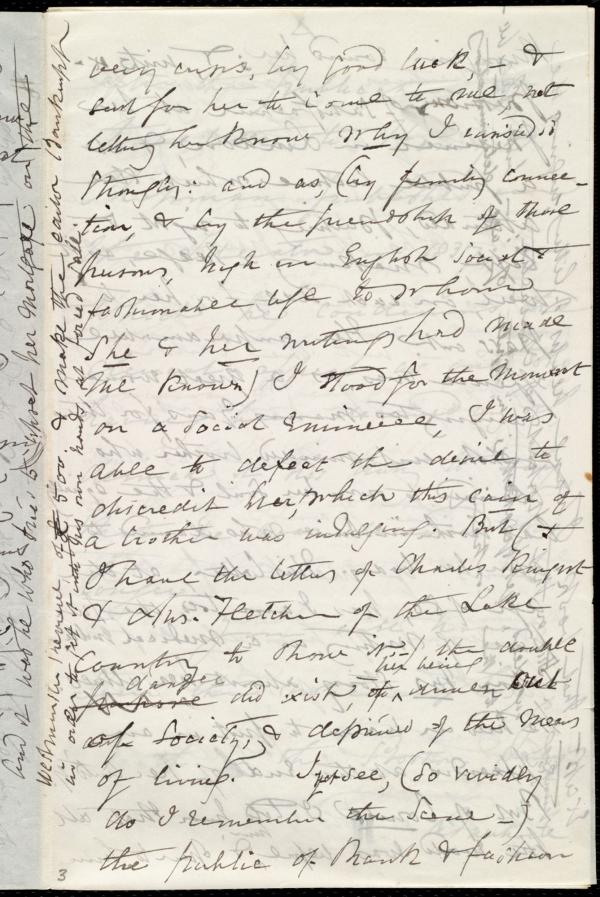 very crisis, by good luck, - &
sent for her to come to me, not
letting her know why I wished it
strongly: and as, (by family connec-
tion, & by the friendship of those
persons, high in English Society &
fashionable life to whom
She & her writings had made
me known) I stood for the moment
on a social eminence, I was
able to defeat the desire to
discredit her, which this Cain of
a brother was indulging. But (&
I have the letters of Charles
& Mrs. Fletcher of the Lake
Country to show it) the double
danger did exist, of her being driven out
of Society, & deprived of the means
of living. I yet see, (so vividly
do I remember the scene -)
the public of Rank & fashion
3
and it was he who tried to upset her mortgage on the
Westminster Review of £500. & make the Editor Bankrupt
in order to get it into his own hands, at forced sale.